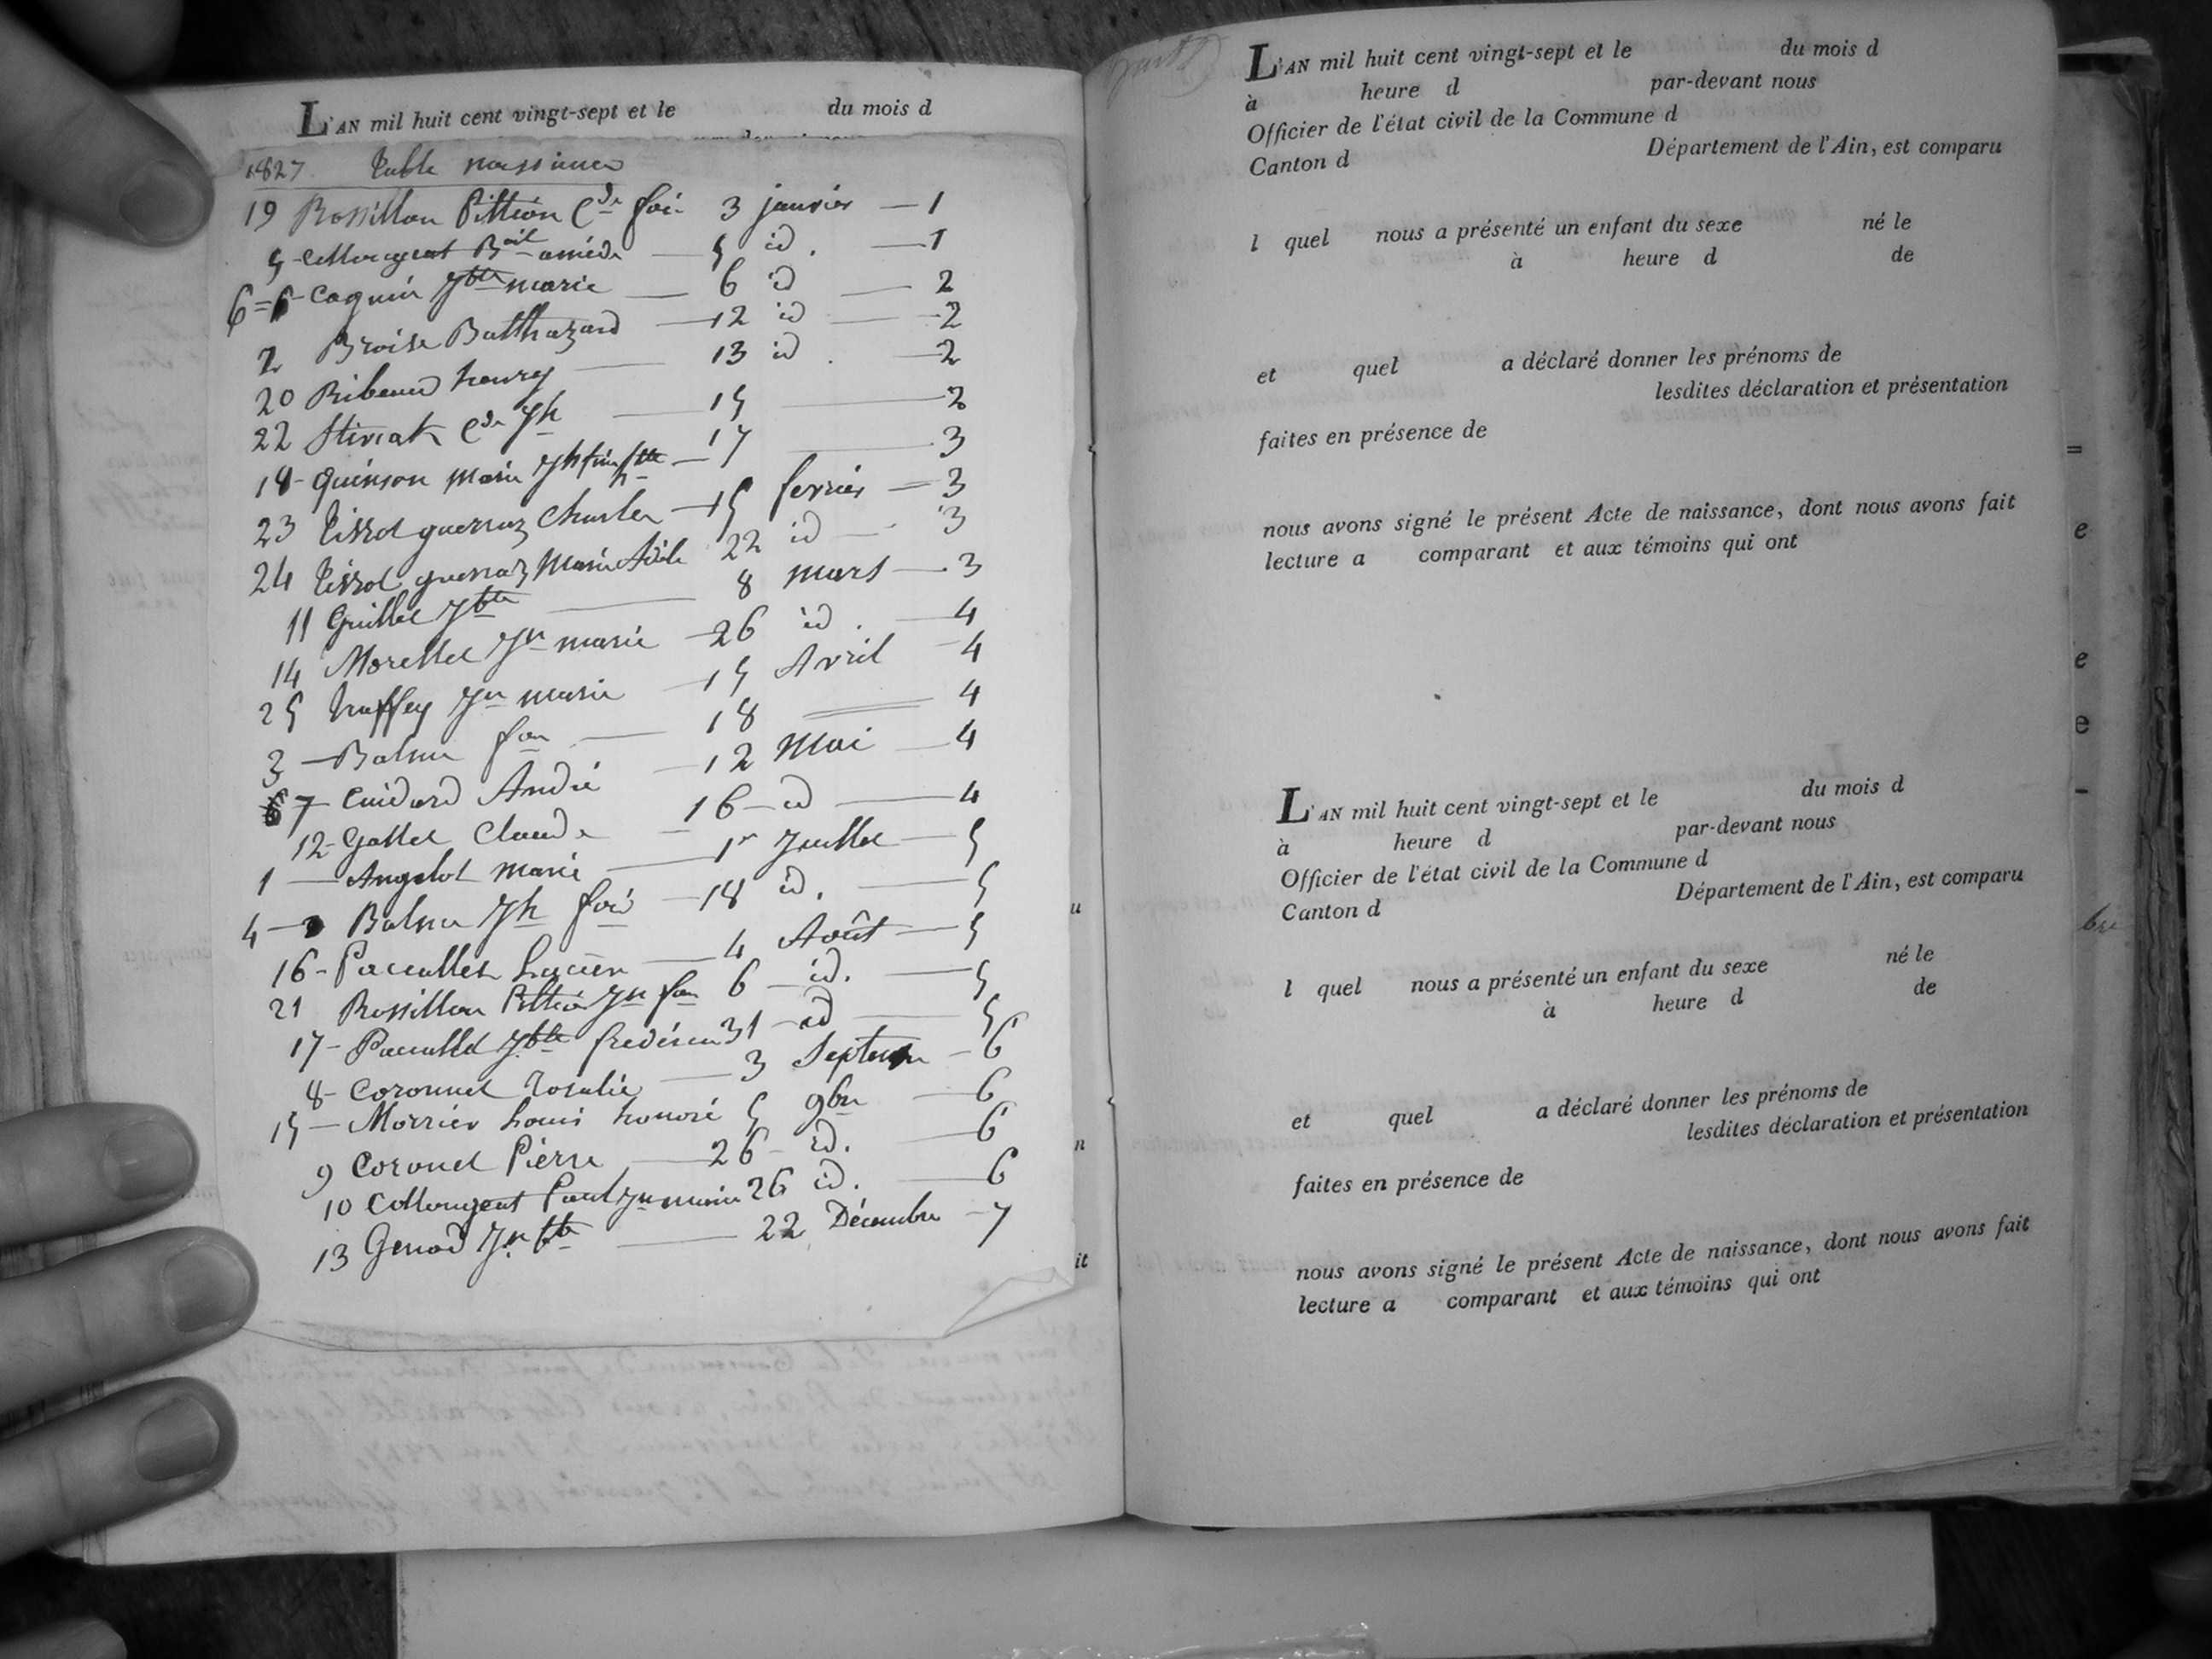 L'AN mil huit cent vingt-sept et le du mois d
1827 Table naissance
19 Rossillon Pittion Cde foi 3 janvier — 1
5 - Collongeat Bait amédé — 5 id. — 1
6 = 6 - Caquin Jbte marie — 6 id — 2
2 Broise Balthazard — 12 id — 2
20 Ribaud henry — 13 id. — 2
22 Cde Jh — 15 — 2
18 - Quinson marie — 17 — 3
23 Tissot guerraz Charles — 15 fevrier — 3
24 Tissot guerraz Marie Adèle 22 id — 3
11 Guillet Jbte — 8 mars — 3
14 Morellet Jn marie — 26 id. — 4
25 truffey Jn marie — 15 Avril — 4
3 — Balme fan — 18 = 4
7 — Cuidard André — 12 Mai — 4
12 - Gallet Claude — 16 — id — 4
1 — Angelot marie — 1r Juillet — 5
4 — Balme Jh fois — 18 id. — 5
16 - Pacallet Lucien — 4 Août — 5
21 Rossillon Pittion Jn fan 6 — id. — 5
17 - Pacallet Jbte frederic 31 — id — 5
8 - Coronnet Rosalie — 3 Septem — 6
15 — Morrier Louis honoré 5 9bre — 6
9 Coronet Pierre — 26 - id. — 6
10 Collongeat Paul Jn marie 26 id. — 6
13 Genod Jn bte — 22 Décembre — 7
L'AN mil huit cent vingt-sept et le du mois d
à heure d par-devant nous
Officier de l'état civil de la Commune d
Canton d Département de l'Ain, est comparu
l quel nous a présenté un enfant du sexe né le
à heure d de
et quel a déclaré donner les prénoms de
lesdites déclaration et présentation
faites en présence de
nous avons signé le présent Acte de naissance, dont nous avons fait
lecture a comparant et aux témoins qui ont
L'AN mil huit cent vingt-sept et le du mois d
à heure d par-devant nous
Officier de l'état civil de la Commune d
Canton d Département de l'Ain, est comparu
l quel nous a présenté un enfant du sexe né le
à heure d de
et quel a déclaré donner les prénoms de
lesdites déclaration et présentation
faites en présence de
nous avons signé le présent Acte de naissance, dont nous avons fait
lecture a comparant et aux témoins qui ont